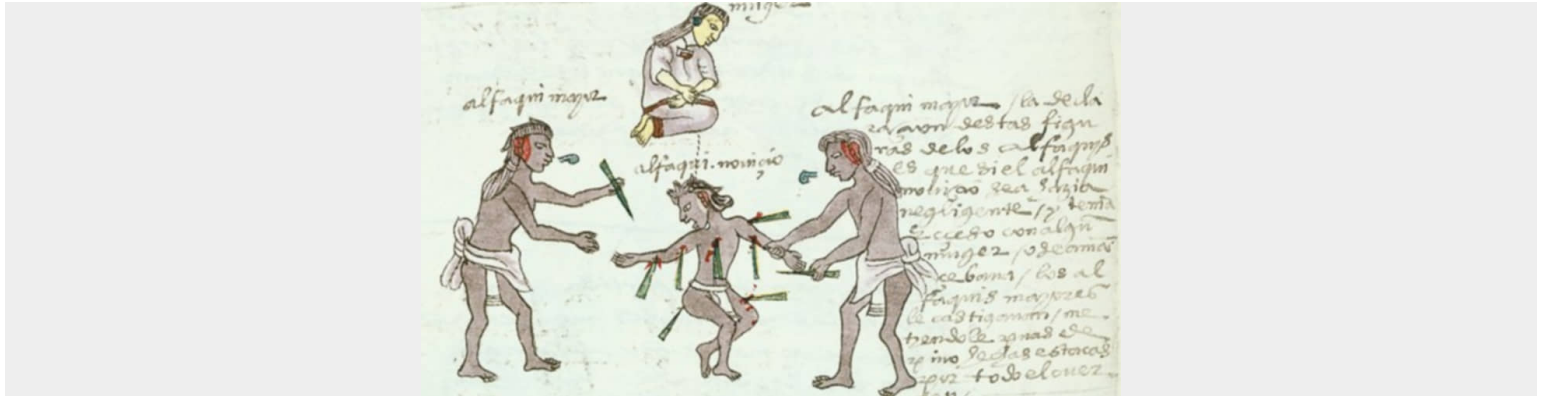 muger
alfaqui mayor
alfaqui. noviçio
alfaqui mayor / la decla
raçion destas figu
ras de los alfaquis
es que si el alfaqui
noviçio
negligente / y tenia
eçeso con algun
muger / o de aman
cebava / los al
faquis mayores
le castigavan / me
tiendole puas de
pino
por todo el cuer